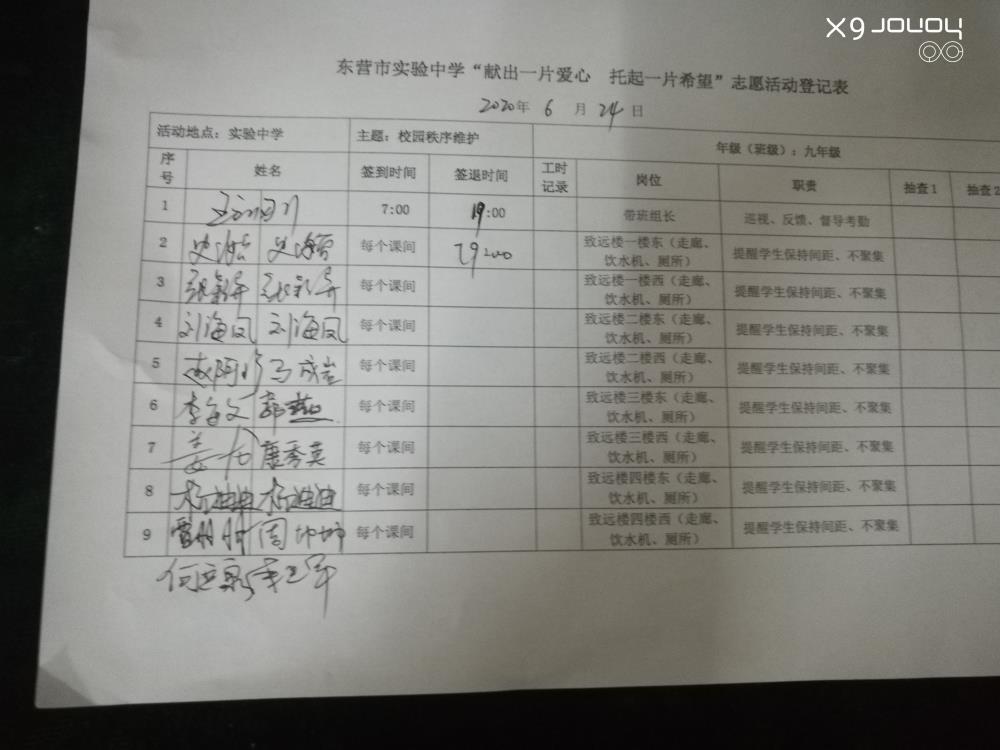 X9 JOVOY
东营市实验中学“献出一片爱心 托起一片希望”志愿活动登记表
2020年 6 月 24 日
活动地点：实验中学 主题：校园秩序维护 年级（班级）：九年级
序号 姓名 签到时间 签退时间 工时记录 岗位 职责 抽查1 抽查2
1 7:00 19:00 带班组长 巡视、反馈、督导考勤
2 每个课间 致远楼一楼东（走廊、饮水机、厕所） 提醒学生保持间距、不聚集
3 每个课间 致远楼一楼西（走廊、饮水机、厕所） 提醒学生保持间距、不聚集
4 刘海凤 刘海凤 每个课间 致远楼二楼东（走廊、饮水机、厕所） 提醒学生保持间距、不聚集
5 马成岩 每个课间 致远楼二楼西（走廊、饮水机、厕所） 提醒学生保持间距、不聚集
6 郭燕 每个课间 致远楼三楼东（走廊、饮水机、厕所） 提醒学生保持间距、不聚集
7 康秀英 每个课间 致远楼三楼西（走廊、饮水机、厕所） 提醒学生保持间距、不聚集
8 杨迪迪 杨迪迪 每个课间 致远楼四楼东（走廊、饮水机、厕所） 提醒学生保持间距、不聚集
9 每个课间 致远楼四楼西（走廊、饮水机、厕所） 提醒学生保持间距、不聚集